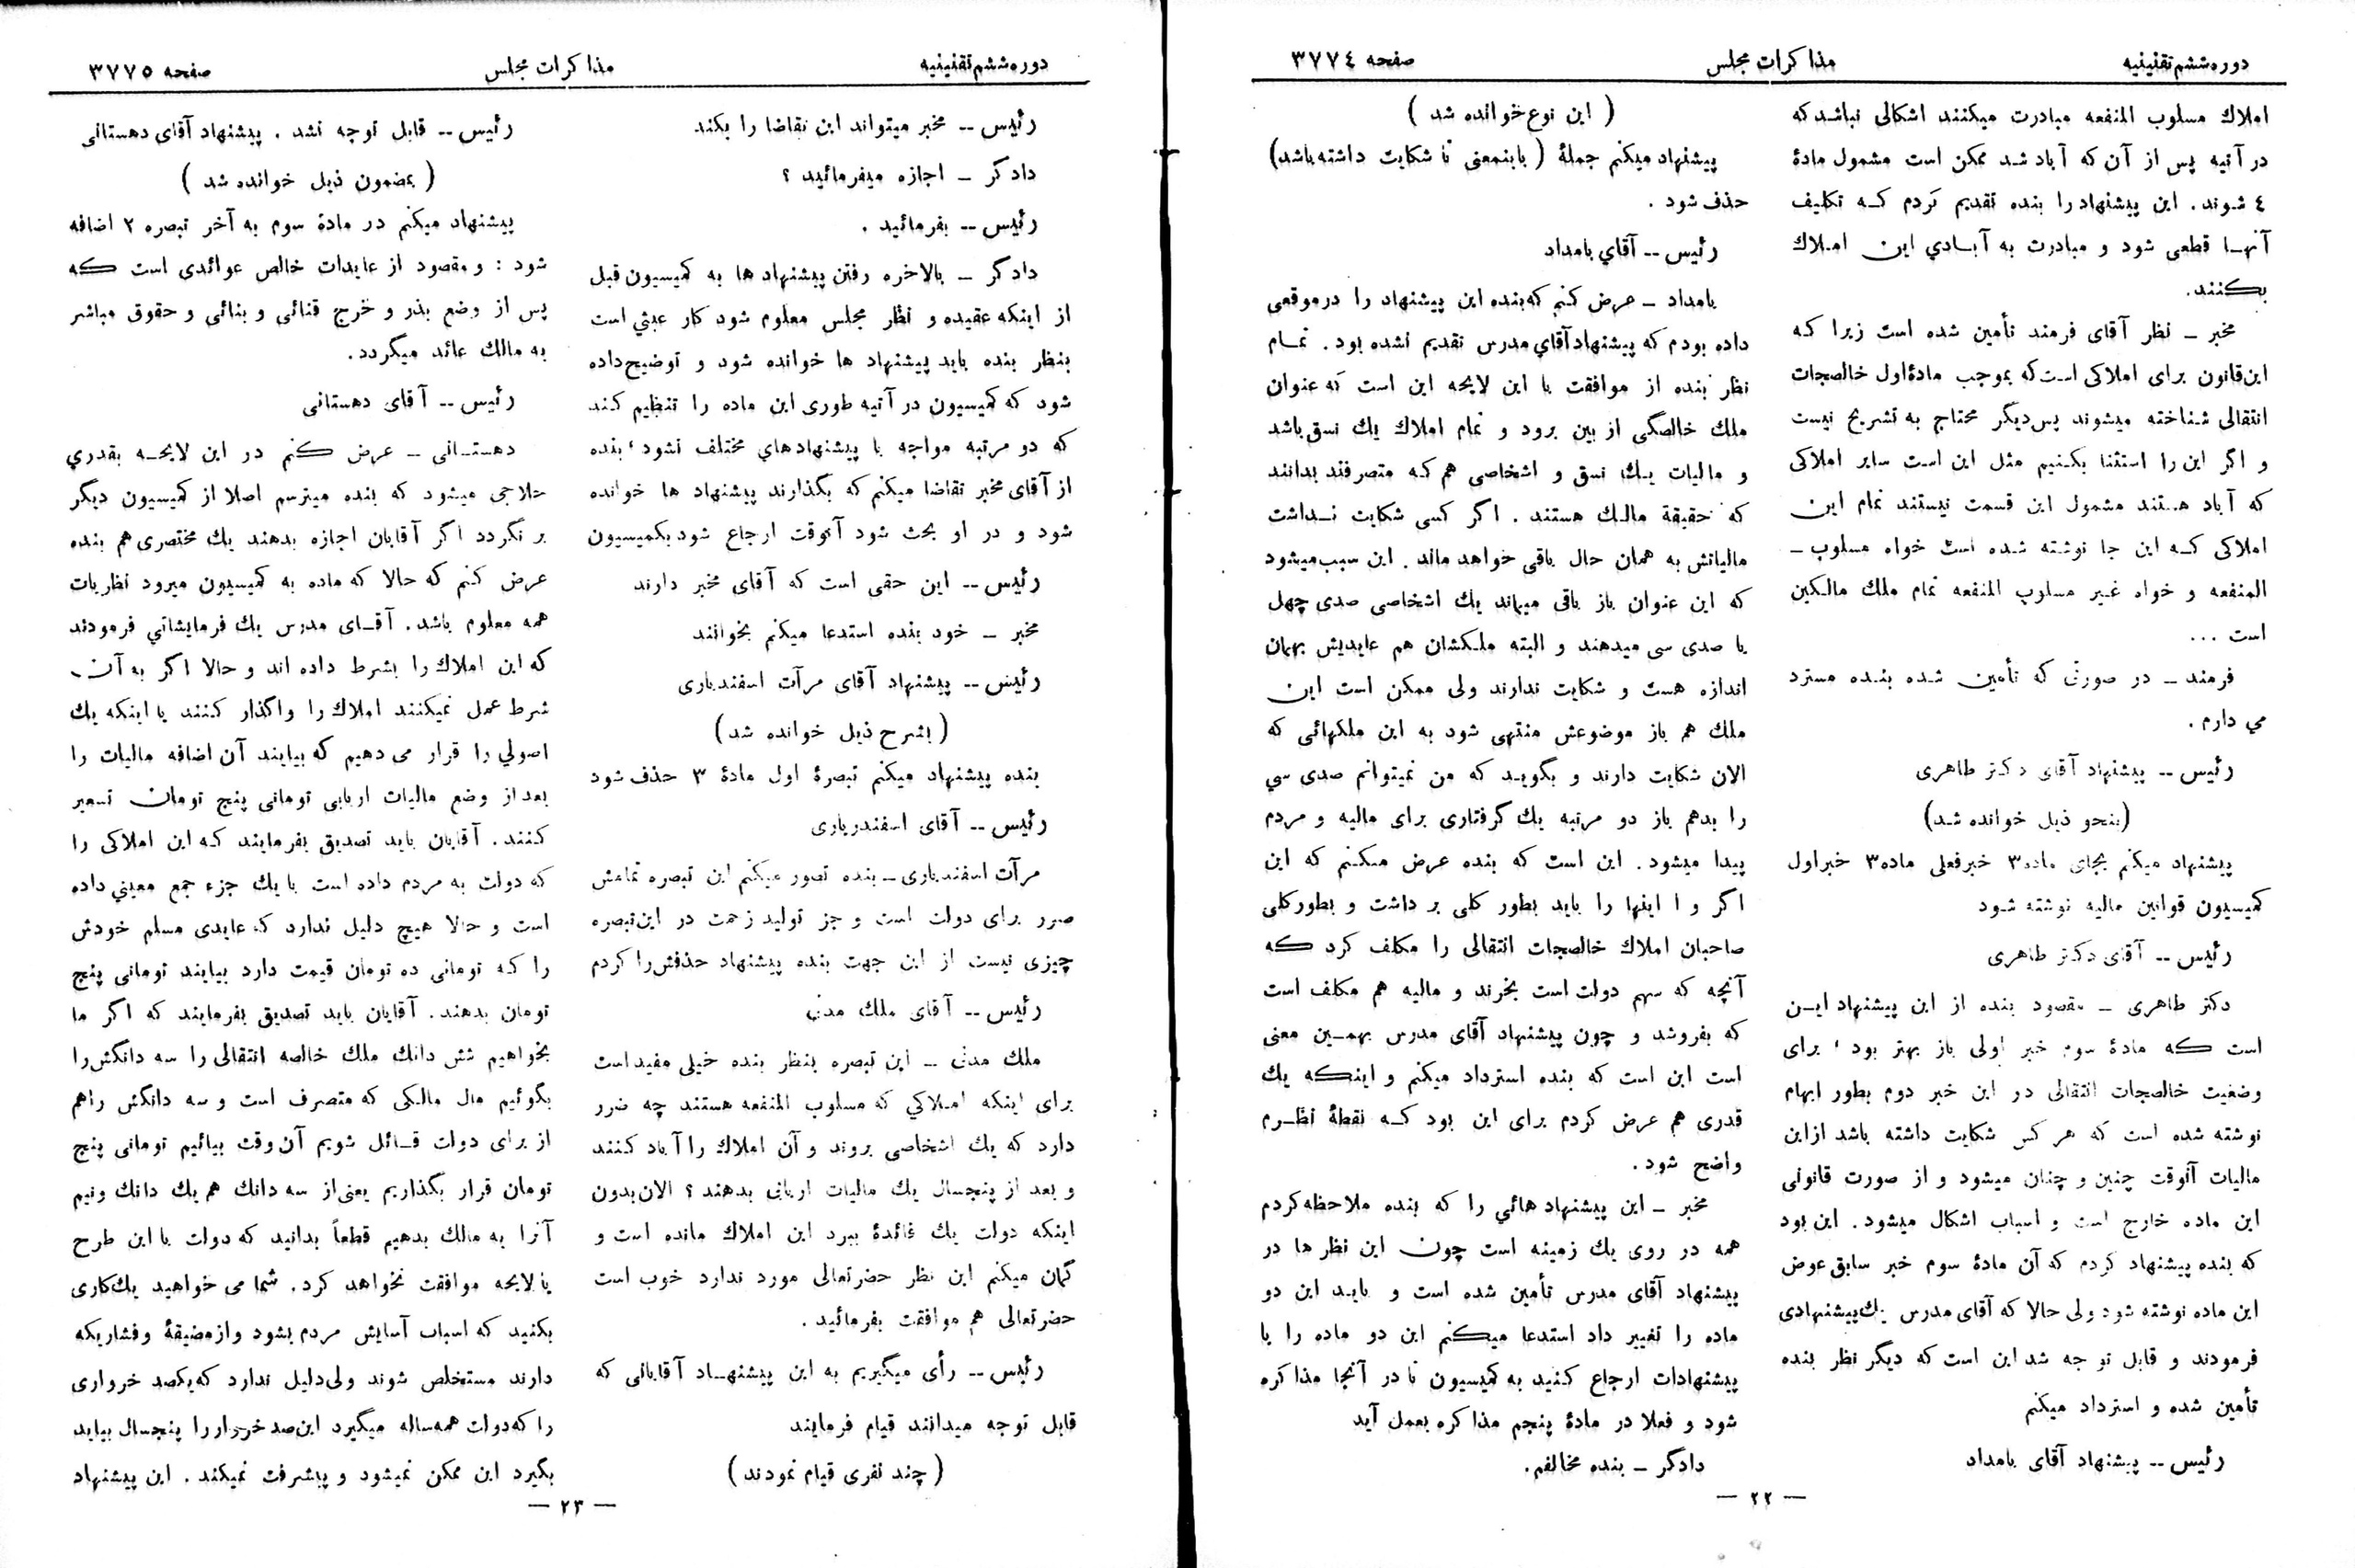 دوره ششم تقنینیه
مذاکرات مجلس
صفحه ٣٧٧٤
املاك مسلوب المنفعه مبادرت میکنند اشکالی نباشد که
در آتیه پس از آن که آباد شد ممکن است مشمول مادهٔ
٤ شوند . این پیشنهاد را بنده تقدیم کردم کـه تکلیف
آنهـا قطعی شود و مبادرت به آبـادي این املاك
بکنند.
مخبر ـ نظر آقای فرمند تأمین شده است زیرا کـه
این قانون برای املاکی است که بموجب مادهٔ اول خالصجات
انتقالی شناخته میشوند پس دیگر محتاج به تشریح نیست
و اگر این را استثنا بکنیم مثل این است سایر املاکی
که آباد هستند مشمول این قسمت نیستند تمام این
املاکی کـه این جا نوشته شده است خواه مسلوب ـ
المنفعه و خواه غیر مسلوب المنفعه تمام ملك مالکین
است ...
فرمند ـ در صورتی که تأمین شده بنـده مسترد
می دارم .
رئیس -- پیشنهاد آقای دکتر طاهری
(بنحو ذیل خوانده شد)
پیشنهاد میکنم بجای ماده ٣ خبر فعلی ماده ٣ خبر اول
کمیسیون قوانین مالیه نوشته شود
رئیس -- آقای دکتر طاهری
دکتر طاهری ـ مقصود بنده از این پیشنهاد ایـن
است که مادهٔ سوم خبر اولی باز بهتر بود ، برای
وضعیت خالصجات انتقالی در این خبر دوم بطور ابهام
نوشته شده است که هر کس شکایت داشته باشد از این
مالیات آنوقت چنین و چنان میشود و از صورت قانونی
این ماده خارج است و اسباب اشکال میشود . این بود
که بنده پیشنهاد کردم که آن مادهٔ سوم خبر سابق عوض
این ماده نوشته شود ولی حالا که آقای مدرس یك پیشنهادی
فرمودند و قابل توجه شد این است که دیگر نظر بنده
تأمین شده و استرداد میکنم
رئیس -- پیشنهاد آقای بامداد
( این نوع خوانده شد )
پیشنهاد میکنم جملهٔ ( باینمعنی تا شکایت داشته باشد)
حذف شود .
رئیس -- آقاي بامداد
بامداد ـ عرض کنم که بنده این پیشنهاد را در موقعی
داده بودم که پیشنهاد آقاي مدرس تقدیم نشده بود . تمـام
نظر بنده از موافقت با این لایحه این است که عنوان
ملك خالصگی از بین برود و تمام املاك یك نسق باشد
و مالیات یـك نسق و اشخاصی هم کـه متصرفند بدانند
که حقیقة مالك هستند . اگر کسی شکایت نـداشت
مالیاتش به همان حال باقی خواهد ماند . این سبب میشود
که این عنوان باز باقی میماند یك اشخاصی صدی چهل
یا صدی سی میدهند و البته ملکشان هم عایدیش بهمان
اندازه هست و شکایت ندارند ولی ممکن است این
ملك هم باز موضوعش منتهی شود به این ملکهائی که
الان شکایت دارند و بگویـد که من نمیتوانم صدی سي
را بدهم باز دو مرتبه یك گرفتاری برای مالیه و مردم
پیدا میشود . این است که بنده عرض میکنم که این
اگر و ا اینها را باید بطور کلی بر داشت و بطور کلی
صاحبان املاك خالصجات انتقالی را مکلف کرد که
آنچه که سهم دولت است بخرند و مالیه هم مکلف است
که بفروشد و چون پیشنهاد آقای مدرس بهمـین معنی
است این است که بنده استرداد میکنم و اینکه یك
قدری هم عرض کردم برای این بود کـه نقطهٔ نظـرم
واضح شود .
مخبر ـ این پیشنهاد هائي را که بنده ملاحظه کردم
همه در روی یك زمینه است چون این نظر ها در
پیشنهاد آقای مدرس تأمین شده است و بایـد این دو
ماده را تغییر داد استدعا میکنم این دو ماده را با
پیشنهادات ارجاع کنید به کمیسیون تا در آنجا مذاکره
شود و فعلا در مادهٔ پنجم مذاکره بعمل آید
دادگر ـ بنده مخالفم.
— ٢٢ —
دوره ششم تقنینیه
مذاکرات مجلس
صفحه ٣٧٧٥
رئیس -- مخبر میتواند این تقاضا را بکند
دادگر ـ اجازه میفرمائید ؟
رئیس -- بفرمائید .
دادگر ـ بالاخره رفتن پیشنهاد ها به کمیسیون قبل
از اینکه عقیده و نظر مجلس معلوم شود کار عبثي است
بنظر بنده باید پیشنهاد ها خوانده شود و توضیح داده
شود که کمیسیون در آتیه طوری این ماده را تنظیم کند
که دو مرتبه مواجه با پیشنهادهاي مختلف نشود ، بنده
از آقای مخبر تقاضا میکنم که بگذارند پیشنهاد ها خوانده
شود و در او بحث شود آنوقت ارجاع شود بکمیسیون
رئیس -- این حقی است که آقای مخبر دارند
مخبر ـ خود بنده استدعا میکنم بخوانند
رئیس -- پیشنهاد آقای مرآت اسفندیاری
( بشرح ذیل خوانده شد )
بنده پیشنهاد میکنم تبصرهٔ اول مادهٔ ٣ حذف شود
رئیس -- آقای اسفندریاری
مرآت اسفندیاری ـ بنده تصور میکنم این تبصره تمامش
ضرر برای دولت است و جز تولید زحمت در این تبصره
چیزی نیست از این جهت بنده پیشنهاد حذفش را کردم
رئیس -- آقای ملك مدنی
ملك مدنی ـ این تبصره بنظر بنده خیلی مفید است
برای اینکه املاکي که مسلوب المنفعه هستند چه ضرر
دارد که یك اشخاصی بروند و آن املاك را آباد کنند
و بعد از پنجسال یك مالیات اربابی بدهند ؟ الان بدون
اینکه دولت یك فائدهٔ ببرد این املاك مانده است و
گمان میکنم این نظر حضرتعالی مورد ندارد خوب است
حضرتعالی هم موافقت بفرمائید .
رئیس -- رأی میگیریم به این پیشنهـاد آقایانی که
قابل توجه میدانند قیام فرمایند
( چند نفری قیام نمودند )
رئیس -- قابل توجه نشد . پیشنهاد آقای دهستانی
( بمضمون ذیل خوانده شد )
پیشنهاد میکنم در مادهٔ سوم به آخر تبصره ٢ اضافه
شود : و مقصود از عایدات خالص عوائدی است که
پس از وضع بذر و خرج قنائی و بنائی و حقوق مباشر
به مالك عائد میگردد.
رئیس -- آقای دهستانی
دهستـانی ـ عرض کنم در این لایحـه بقدري
حلاجی میشود که بنده میترسم اصلا از کمیسیون دیگر
بر نگردد اگر آقایان اجازه بدهند یك مختصری هم بنده
عرض کنم که حالا که ماده به کمیسیون میرود نظریات
همه معلوم باشد . آقـای مدرس یك فرمایشاتي فرمودند
که این املاك را بشرط داده اند و حالا اگر به آن
شرط عمل نمیکنند املاك را واگذار کنند یا اینکه یك
اصولي را قرار می دهیم که بیایند آن اضافه مالیات را
بعد از وضع مالیات اربابی تومانی پنج تومان تسعیر
کنند . آقایان باید تصدیق بفرمایند کـه این املاکی را
که دولت به مردم داده است با یك جزء جمع معیني داده
است و حالا هیچ دلیل ندارد که عایدی مسلم خودش
را کـه تومانی ده تومان قیمت دارد بیایند تومانی پنج
تومان بدهند . آقایان باید تصدیق بفرمایند که اگر ما
بخواهیم شش دانك ملك خالصه انتقالی را سه دانگش را
بگوئیم مال مالکی که متصرف است و سه دانگش را هم
از برای دولت قـائل شویم آن وقت بیائیم تومانی پنج
تومان قرار بگذاریم یعنی از سه دانك هم یك دانك و نیم
آنرا به مالك بدهیم قطعاً بدانید که دولت با این طرح
یا لایحه موافقت نخواهد کرد . شما می خواهید یك کاری
بکنید که اسباب آسایش مردم بشود و از مضیقهٔ و فشاریکه
دارند مستخلص شوند ولی دلیل ندارد که یکصد خرواری
را که دولت همه ساله میگیرد این صد خروار را پنجسال بیاید
بگیرد این ممکن نمیشود و پیشرفت نمیکند . این پیشنهاد
— ٢٣ —